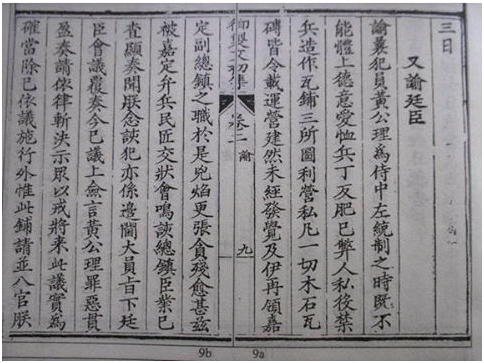 三日
又諭廷臣
諭曩犯員黃公理為侍中左統制之時既不
能體上德意愛恤兵丁反肥己弊人私役禁
兵造作瓦鋪三所圖利營私凡一切木石瓦
磚皆令載運營建然未經發覺及伊再領嘉
御製文初集 卷二 諭 九
定副總鎮之職於是兇焰更張貪殘愈甚茲
被嘉定弁兵民匠交狀會鳴該總鎮臣業已
查顯奏聞朕念該犯亦係邊閫大員旨下廷
臣會議覆奏今已議上僉言黃公理罪惡貫
盈奏請依律斬決示眾以戒將來此議實為
確當除已依議施行外惟此鋪請並入官朕
9b 9a